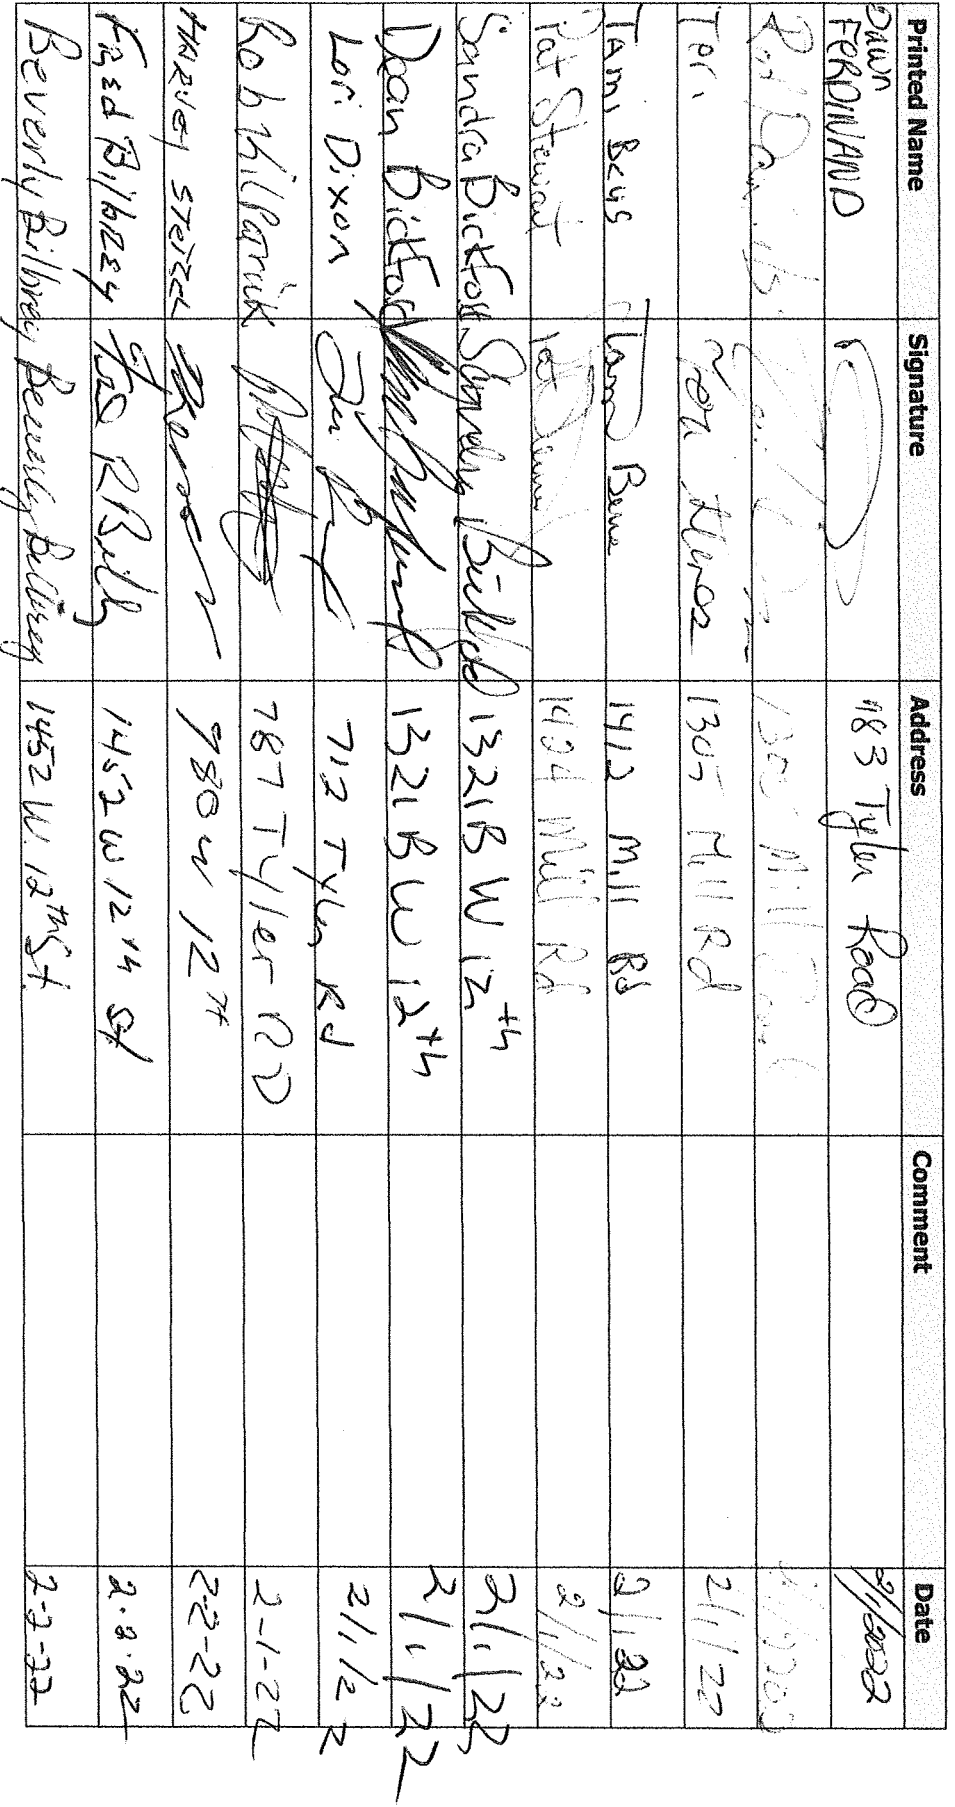 Printed Name Signature Address Comment Date
Dawn
FERDINAND 783 Tyler Road 2/1/2022
Mill
Teri 1305 Mill Rd 2/1/22
TAmi Beus Tami Beus 1412 Mill Rd 2/1/22
Pat Stewart Pat Stewart 1424 Mill Rd 2/1/22
Sandra Bickford Sandra Bickford 1321B W 12th 2/1/22
Dean Bickford 1321 B W 12th 2/1/22
Lori Dixon 712 Tyler Rd 2/1/22
Rob Kilpatrick 787 Tyler RD 2-1-22
HARVey STeizel 980 W 12TH 2-2-22
FRed BilbRey Fred R Bilby 1452 W 12th St 2.2.22
Beverly Bilbrey Beverly Bilbrey 1452 W. 12th St. 2-2-22